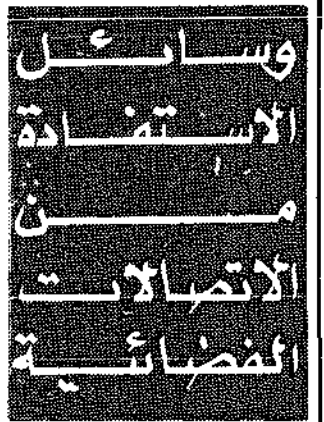 وسائل
الاستفادة
من
الاتصالات
الفضائية